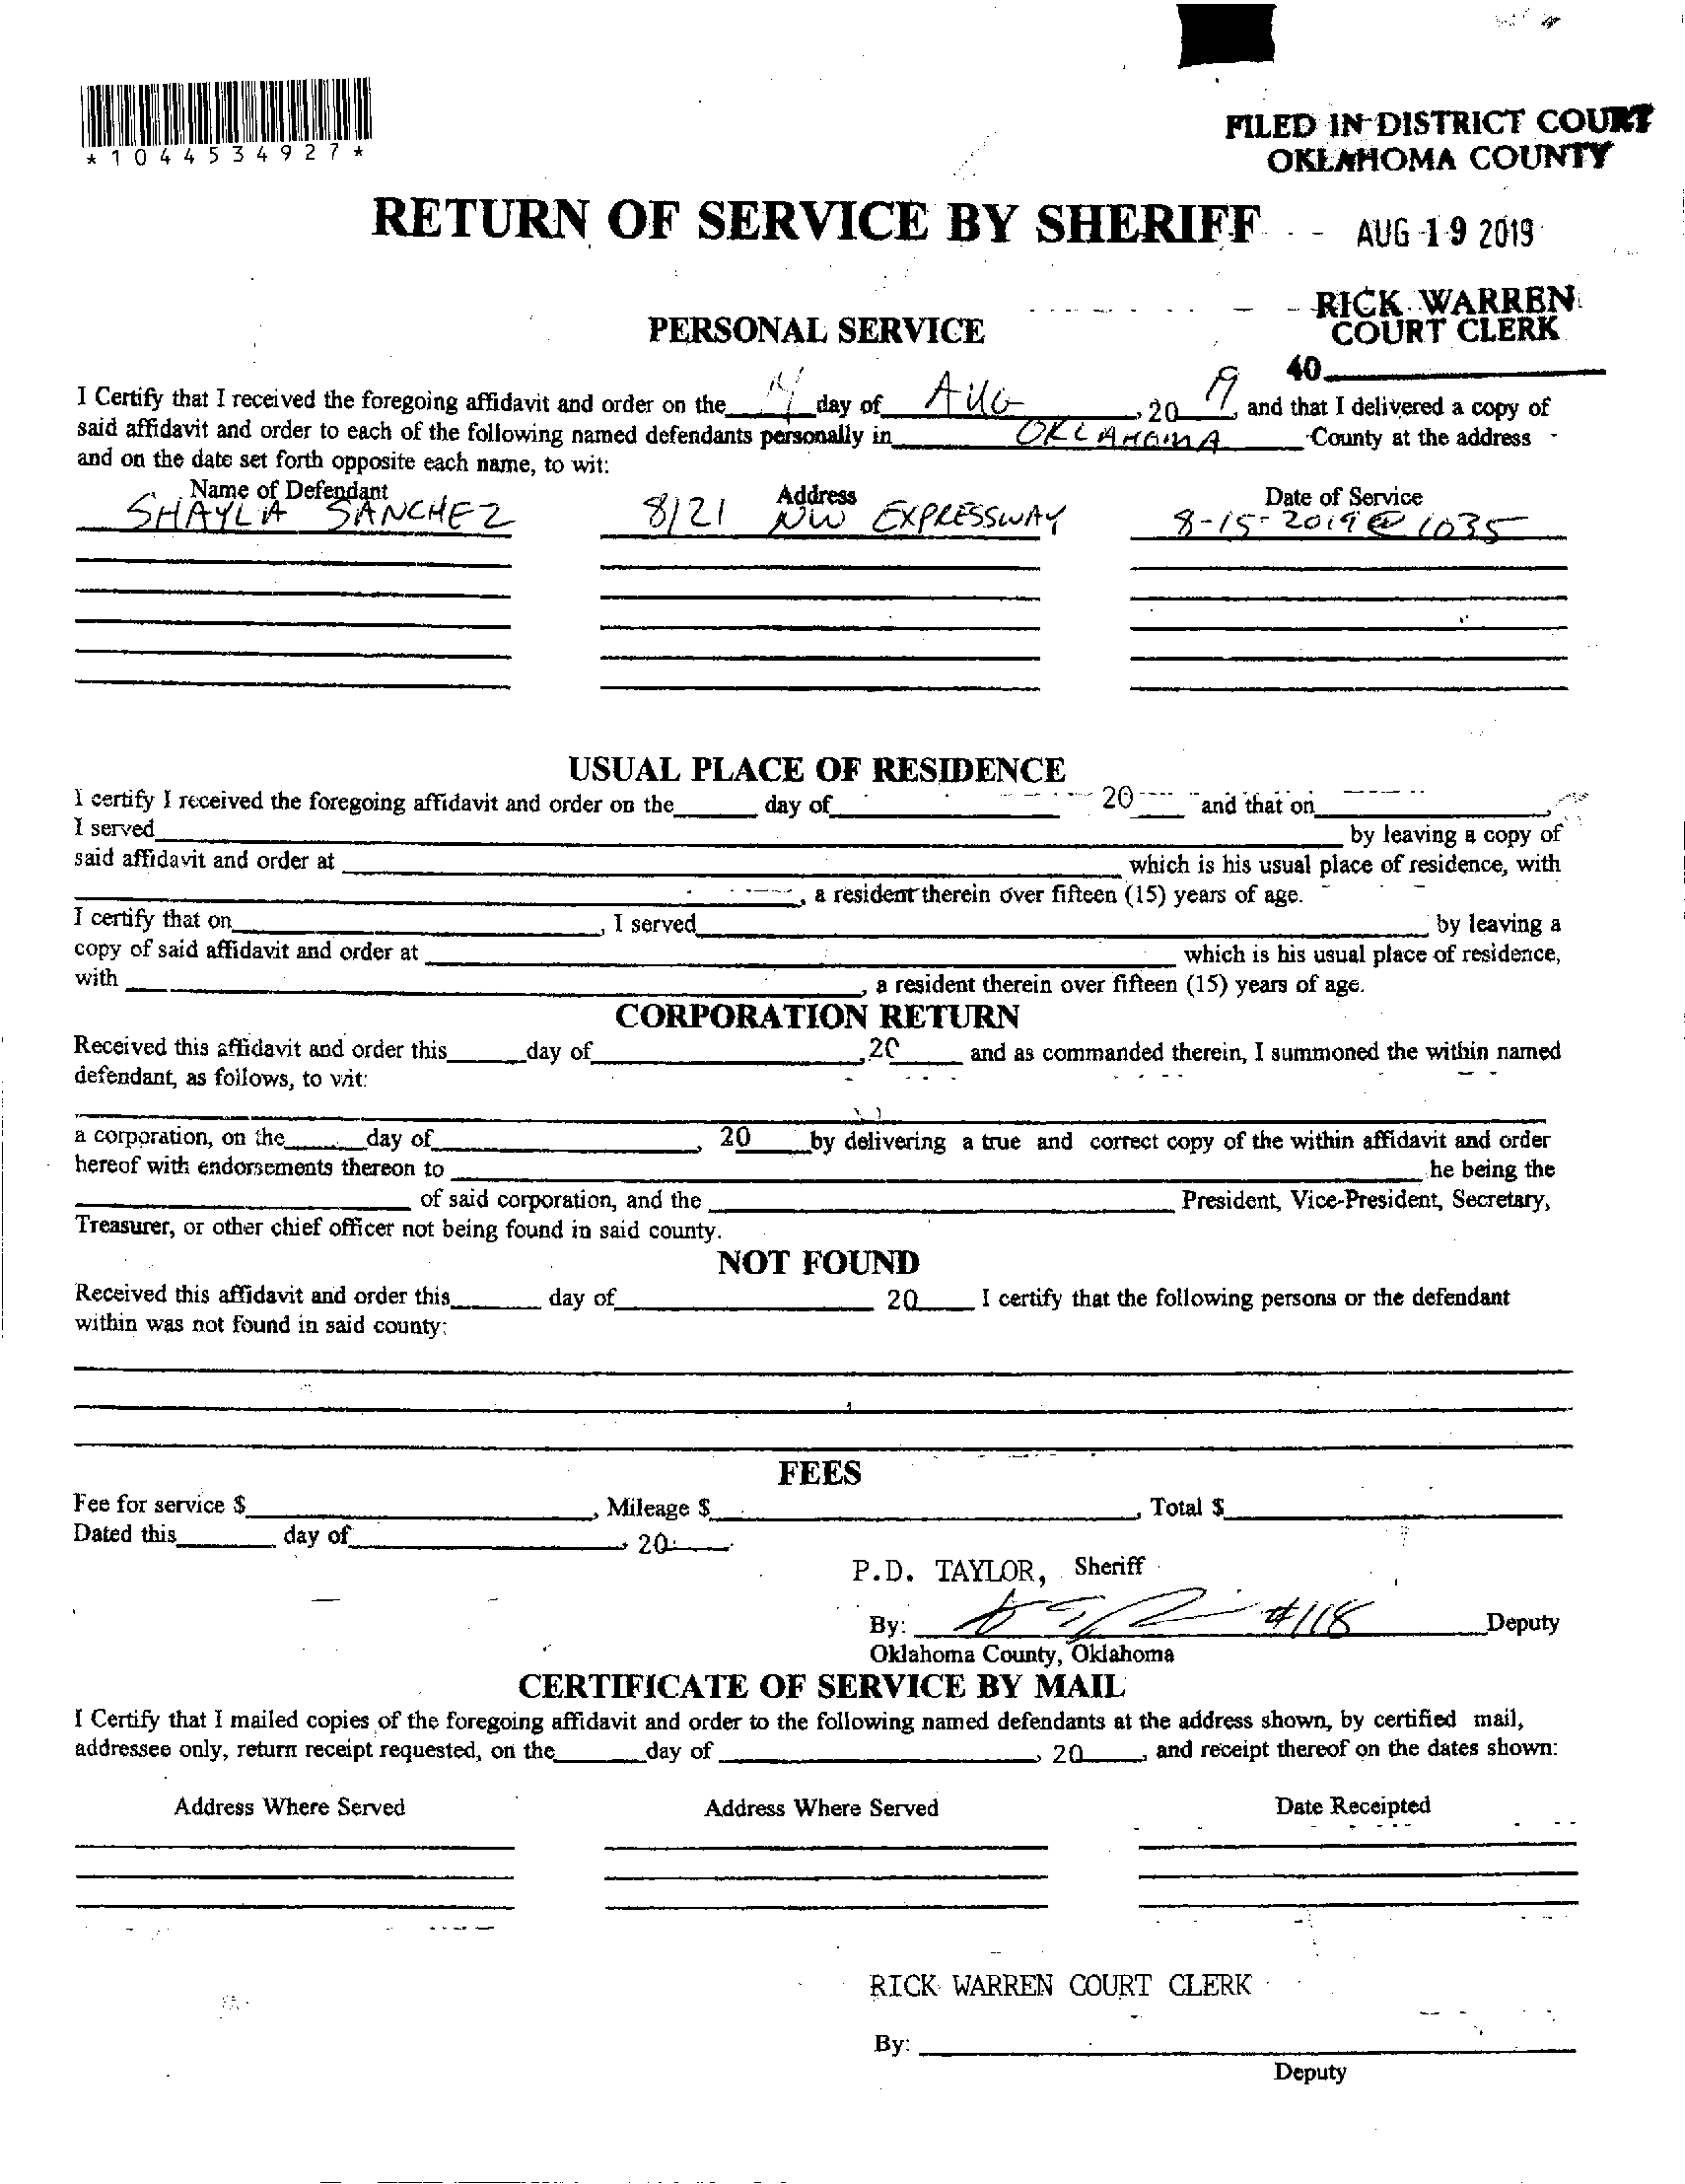 *1044534927*
FILED IN DISTRICT COURT
OKLAHOMA COUNTY
RETURN OF SERVICE BY SHERIFF
AUG 19 2019
RICK WARREN
COURT CLERK
40
PERSONAL SERVICE
I Certify that I received the foregoing affidavit and order on the 14 day of AUG, 20 19, and that I delivered a copy of
said affidavit and order to each of the following named defendants personally in OKLAHOMA County at the address
and on the date set forth opposite each name, to wit:
Name of Defendant Address Date of Service
SHAYLA SANCHEZ 8121 NW EXPRESSWAY 8-15-2019 @ 1035
USUAL PLACE OF RESIDENCE
I certify I received the foregoing affidavit and order on the day of 20 and that on ,
I served by leaving a copy of
said affidavit and order at which is his usual place of residence, with
, a resident therein over fifteen (15) years of age.
I certify that on , I served by leaving a
copy of said affidavit and order at which is his usual place of residence,
with , a resident therein over fifteen (15) years of age.
CORPORATION RETURN
Received this affidavit and order this day of , 20 and as commanded therein, I summoned the within named
defendant, as follows, to wit:
a corporation, on the day of , 20 by delivering a true and correct copy of the within affidavit and order
hereof with endorsements thereon to he being the
of said corporation, and the President, Vice-President, Secretary,
Treasurer, or other chief officer not being found in said county.
NOT FOUND
Received this affidavit and order this day of 20 I certify that the following persons or the defendant
within was not found in said county:
FEES
Fee for service $ , Mileage $ , Total $
Dated this day of , 20
P.D. TAYLOR, Sheriff
By: #118 Deputy
Oklahoma County, Oklahoma
CERTIFICATE OF SERVICE BY MAIL
I Certify that I mailed copies of the foregoing affidavit and order to the following named defendants at the address shown, by certified mail,
addressee only, return receipt requested, on the day of , 20 , and receipt thereof on the dates shown:
Address Where Served Address Where Served Date Receipted
RICK WARREN COURT CLERK
By:
Deputy